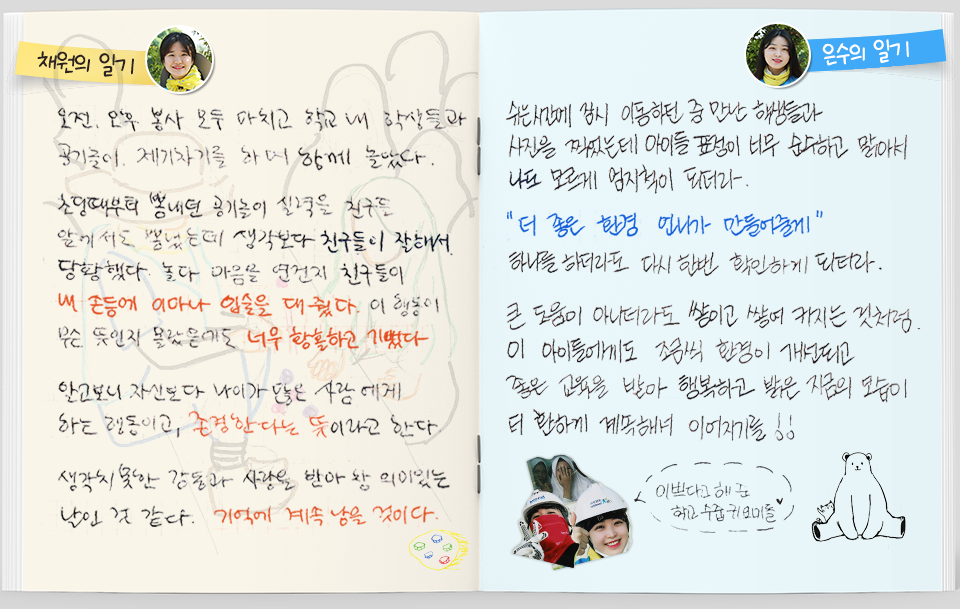 채원의 일기
오전, 오후 봉사 모두 마치고 학교 내 학생들과
공기놀이, 제기차기를 하며 함께 놀았다.
초딩때부터 뽐내던 공기놀이 실력을 친구들
앞에서도 뽐냈는데 생각보다 친구들이 잘해서
당황했다. 놀다 마음을 연건지 친구들이
내 손등에 이마나 입술을 대 줬다. 이 행동이
무슨 뜻인지 몰랐음에도 너무 황홀하고 기뻤다
알고보니 자신보다 나이가 많은 사람에게
하는 행동이고, 존경한다는 뜻이라고 한다.
생각치 못한 감동과 사랑을 받아 참 의미있는
날인 것 같다. 기억에 계속 남을 것이다.
은수의 일기
쉬는시간에 잠시 이동하던 중 만난 학생들과
사진을 찍었는데 아이들 표정이 너무 순수하고 맑아서
나도 모르게 엄지척이 되더라.
"더 좋은 환경 언니가 만들어줄게"
하나를 하더라도 다시 한번 확인하게 되더라.
큰 도움이 아니더라도 쌓이고 쌓여 커지는 것처럼.
이 아이들에게도 조금씩 환경이 개선되고
좋은 교육을 받아 행복하고 밝은 지금의 모습이
더 환하게 계속해서 이어지기를!!
이쁘다고 해 준
학교 수줍 귀요미들